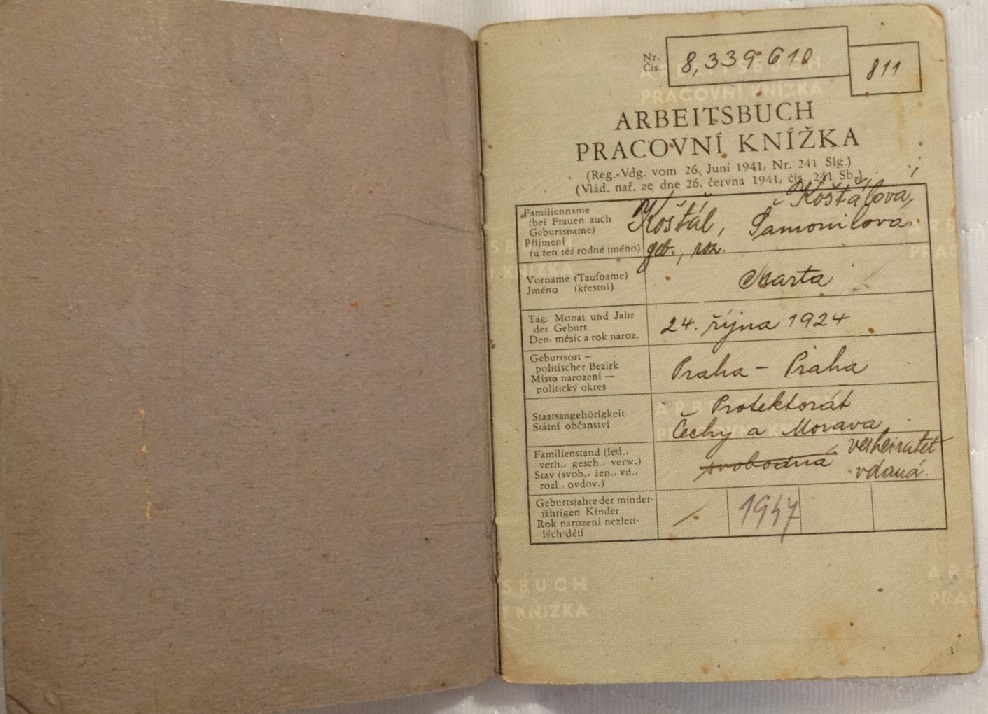 Nr.
Čís.
8,339.610
811
ARBEITSBUCH
PRACOVNÍ KNÍŽKA
(Reg.-Vdg. vom 26. Juni 1941, Nr. 241 Slg.)
(Vlád. nař. ze dne 26. června 1941, čís. 241 Sb.)
Familienname
(bei Frauen auch
Geburtsname)
Příjmení
(u žen též rodné jméno)
Košťálová,
Košťál,
geb., roz.
Vorname (Taufname)
Jméno (křestní)
Marta
Tag, Monat und Jahr
der Geburt
Den, měsíc a rok naroz.
24. října 1924
Geburtsort —
politischer Bezirk
Místo narození —
politický okres
Praha - Praha
Staatsangehörigkeit
Státní občanství
Protektorát
Čechy a Morava
Familienstand (led.,
verh., gesch., verw.)
Stav (svob., žen., vd.,
rozl., ovdov.)
svobodná
verheiratet
vdaná
Geburtsjahre der minder-
jährigen Kinder
Rok narození nezleti-
lých dětí
1947
ARBEITSBUCH
PRACOVNÍ KNÍŽKA
SBUCH
KNÍŽKA